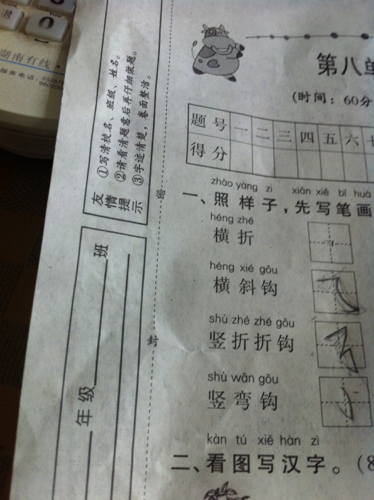 湖南有线
友情提示
①写清校名、班级、姓名。
②请看清题意后再仔细做题。
③字迹清楚，卷面整洁。
年级 班
密
封
第八单
(时间：60分
题号 一 二 三 四 五 六
得分
zhào yàng zi xiān xiě bǐ huà
一、照样子，先写笔画
héng zhé
横折
héng xié gōu
横斜钩
shù zhé zhé gōu
竖折折钩
shù wān gōu
竖弯钩
kàn tú xiě hàn zì
二、看图写汉字。(8